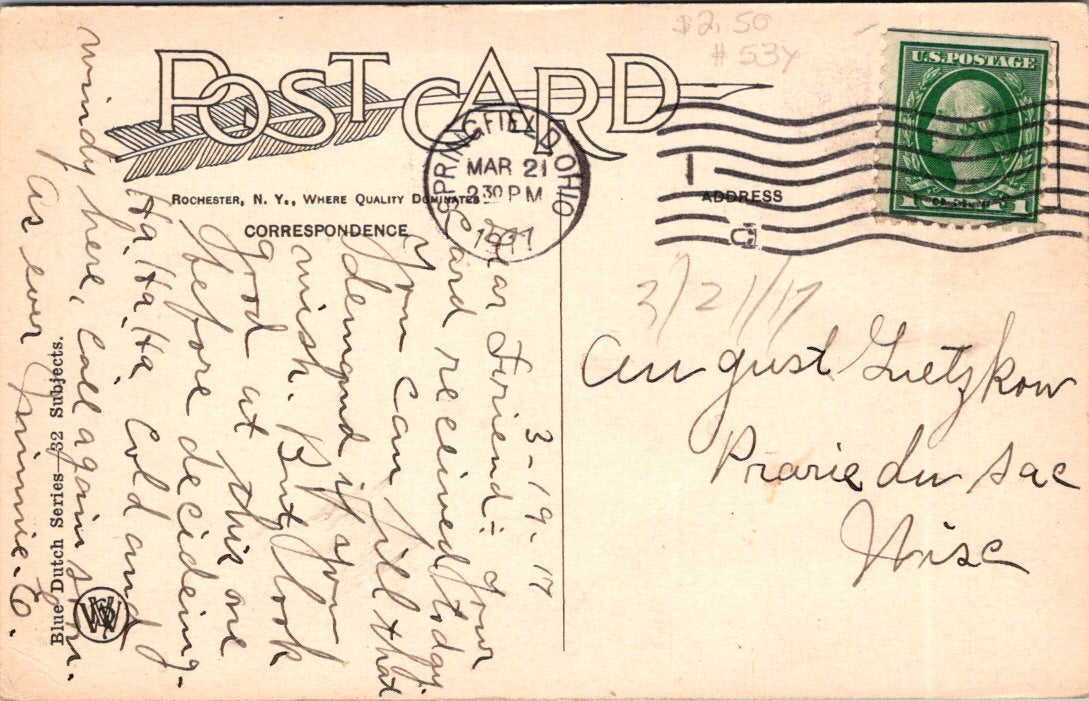 $2.50
# 534
POST CARD
U.S. POSTAGE
1 1
SPRINGFIELD, OHIO
MAR 21
2 30 PM
1917
1
C
ROCHESTER, N. Y., WHERE QUALITY DOMINATES
CORRESPONDENCE
ADDRESS
3/21/17
3-19-17
Dear Friend:- Your
Card received today.
You can fill that
demand if you
wish. But look
good at this one
before deciding.
Ha Ha Ha. Cold and
windy here, Call again
As ever Jimmie. Co.
August Lietzkow
Prarie du Sac
Wisc
Blue Dutch Series—32 Subjects.